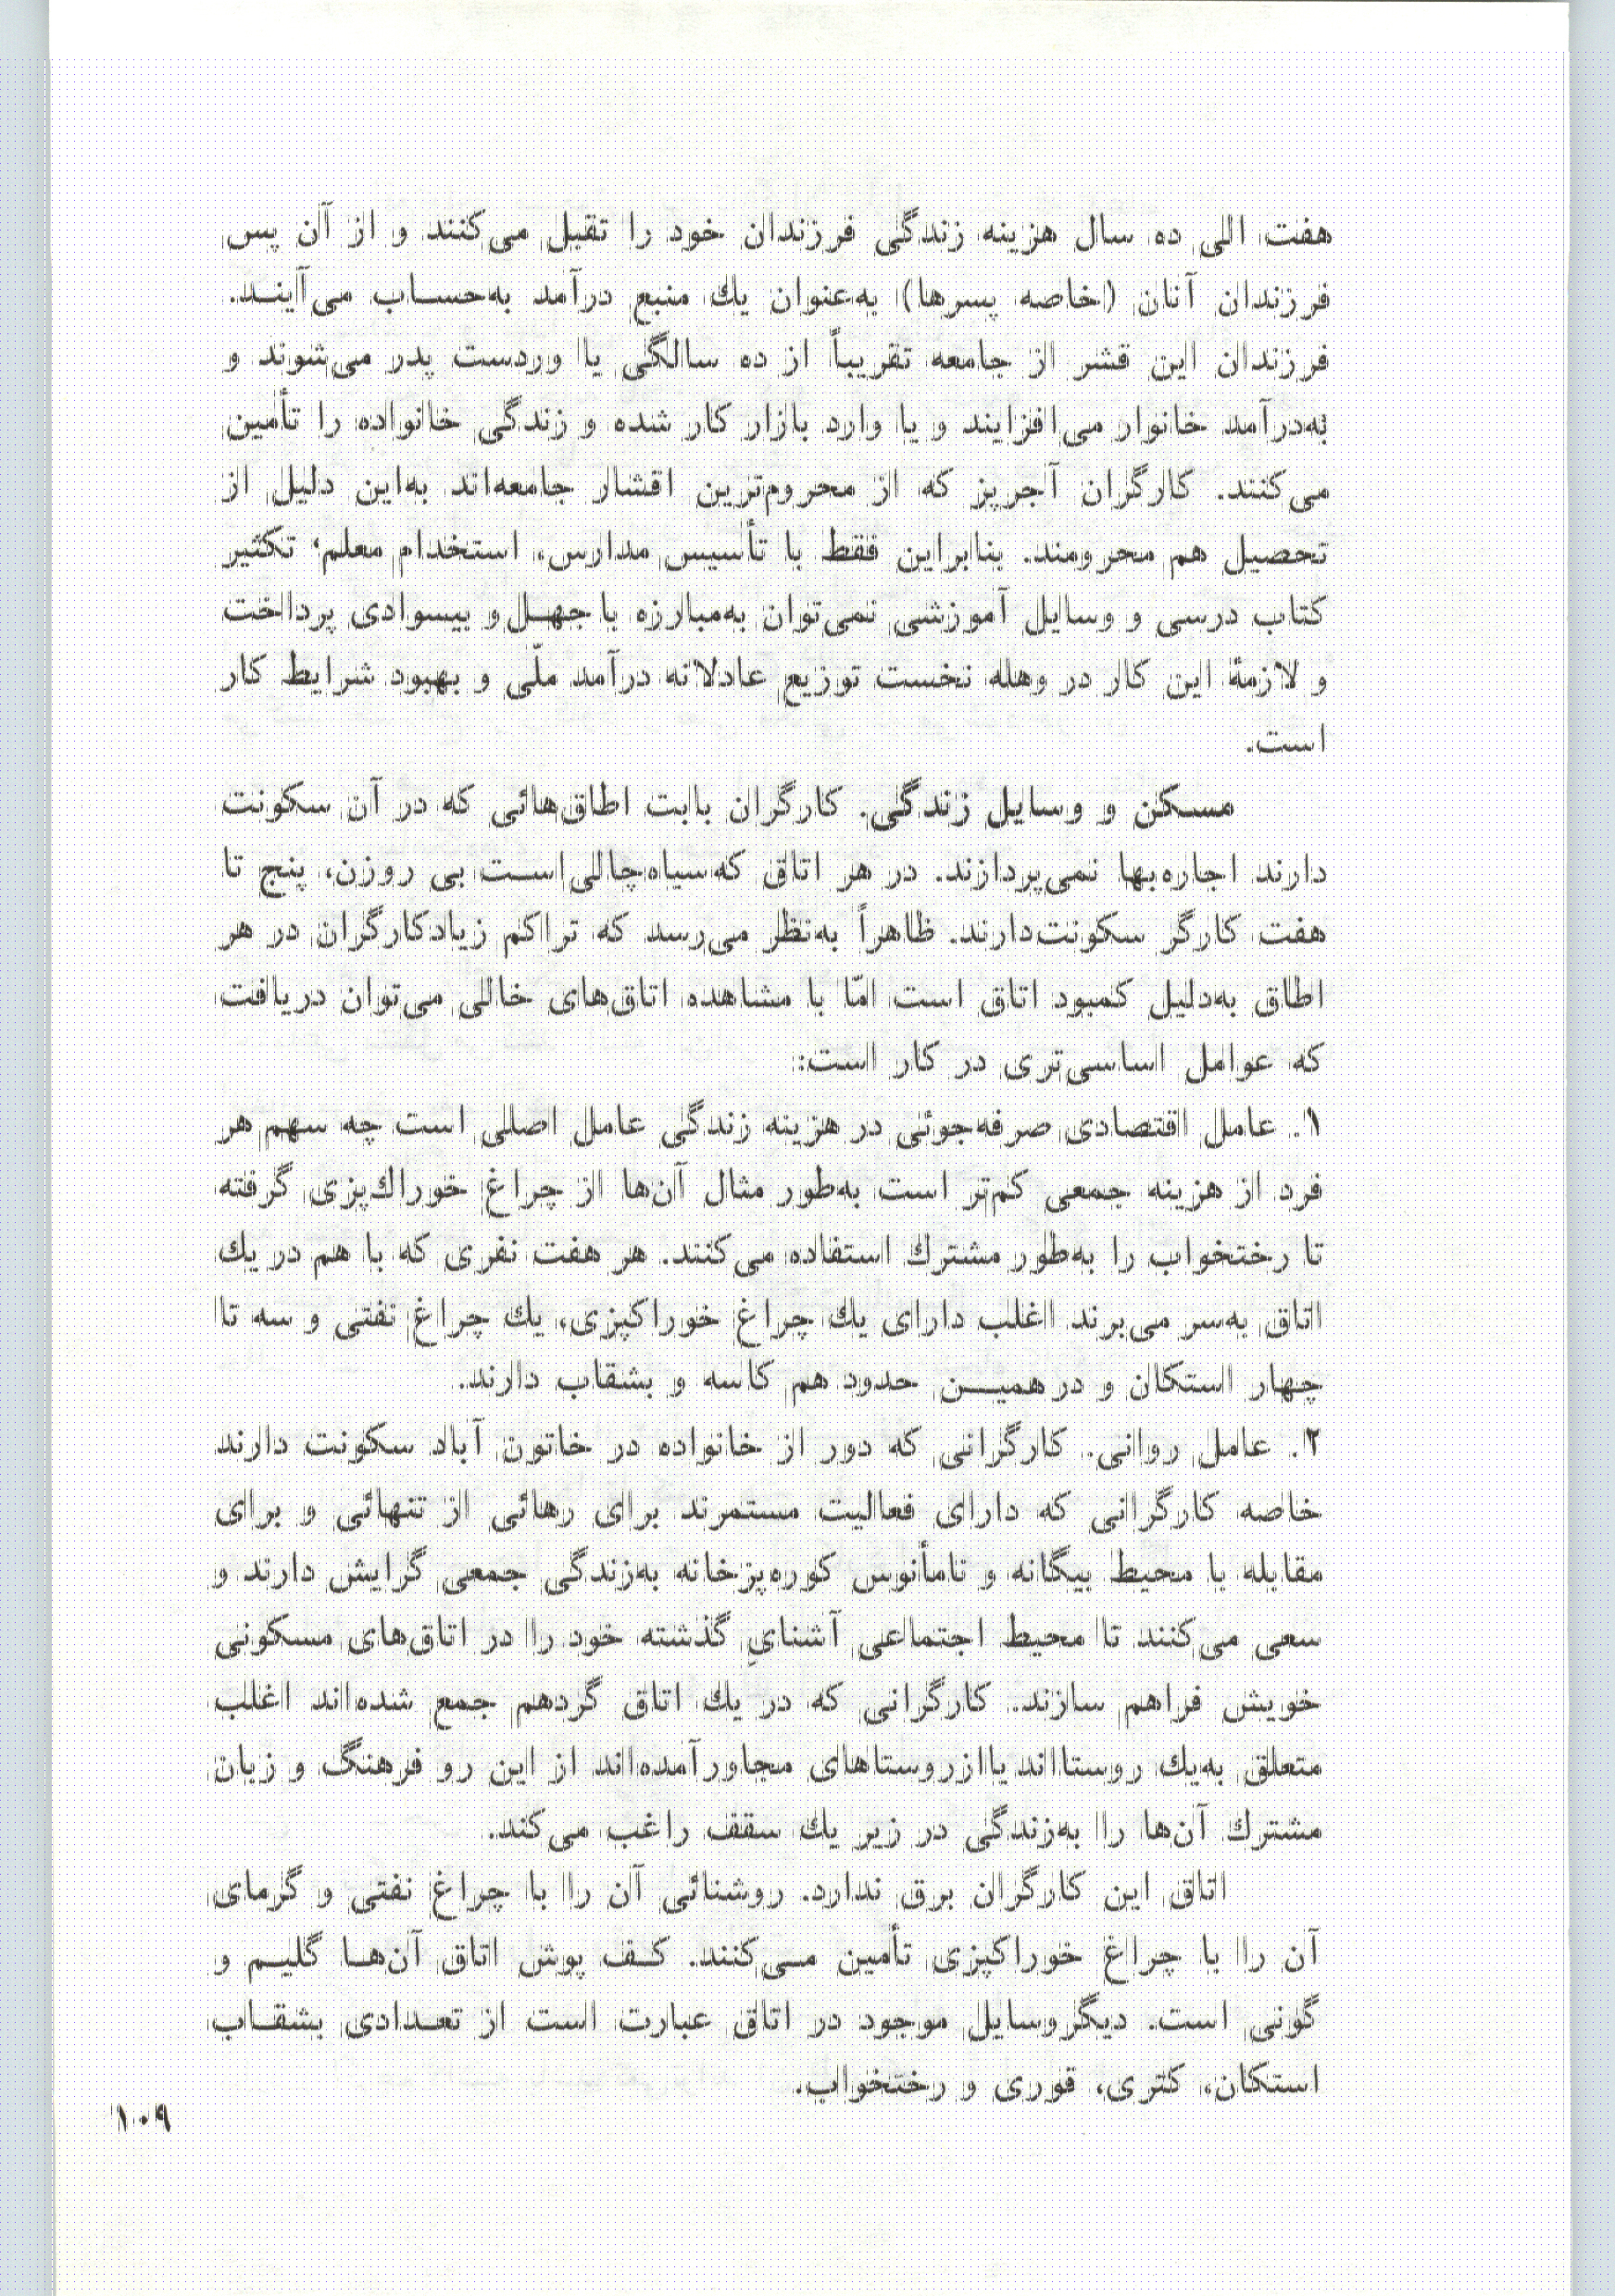 هفت الی ده سال هزینه زندگی فرزندان خود را تقبل می‌کنند و از آن پس
فرزندان آنان (خاصه پسرها) به‌عنوان یك منبع درآمد به‌حساب می‌آیند.
فرزندان این قشر از جامعه تقریباً از ده سالگی یا وردست پدر می‌شوند و
به‌درآمد خانوار می‌افزایند و یا وارد بازار کار شده و زندگی خانواده را تأمین
می‌کنند. کارگران آجرپز که از محروم‌ترین اقشار جامعه‌اند به‌این دلیل از
تحصیل هم محرومند. بنابراین فقط با تأسیس مدارس، استخدام معلم، تکثیر
کتاب درسی و وسایل آموزشی نمی‌توان به‌مبارزه با جهل و بیسوادی پرداخت
و لازمهٔ این کار در وهله نخست توزیع عادلانه درآمد ملّی و بهبود شرایط کار
است.
مسکن و وسایل زندگی. کارگران بابت اطاق‌هائی که در آن سکونت
دارند اجاره‌بها نمی‌پردازند. در هر اتاق که سیاه‌چالی است بی روزن، پنج تا
هفت کارگر سکونت‌دارند. ظاهراً به‌نظر می‌رسد که تراکم زیاد کارگران در هر
اطاق به‌دلیل کمبود اتاق است امّا با مشاهده اتاق‌های خالی می‌توان دریافت
که عوامل اساسی‌تری در کار است:
۱. عامل اقتصادی صرفه‌جوئی در هزینه زندگی عامل اصلی است چه سهم هر
فرد از هزینه جمعی کم‌تر است به‌طور مثال آن‌ها از چراغ خوراك‌پزی گرفته
تا رختخواب را به‌طور مشترك استفاده می‌کنند. هر هفت نفری که با هم در یك
اتاق به‌سر می‌برند اغلب دارای یك چراغ خوراکپزی، یك چراغ نفتی و سه تا
چهار استکان و در همین حدود هم کاسه و بشقاب دارند.
۲. عامل روانی. کارگرانی که دور از خانواده در خاتون آباد سکونت دارند
خاصه کارگرانی که دارای فعالیت مستمرند برای رهائی از تنهائی و برای
مقابله با محیط بیگانه و نامأنوس کوره‌پزخانه به‌زندگی جمعی گرایش دارند و
سعی می‌کنند تا محیط اجتماعی آشنایِ گذشته خود را در اتاق‌های مسکونی
خویش فراهم سازند. کارگرانی که در یك اتاق گردهم جمع شده‌اند اغلب
متعلق به‌یك روستااند یا از روستاهای مجاور آمده‌اند از این رو فرهنگ و زبان
مشترك آن‌ها را به‌زندگی در زیر یك سقف راغب می‌کند.
اتاق این کارگران برق ندارد. روشنائی آن را با چراغ نفتی و گرمای
آن را با چراغ خوراکپزی تأمین می‌کنند. کف پوش اتاق آن‌ها گلیم و
گونی است. دیگر وسایل موجود در اتاق عبارت است از تعدادی بشقاب
استکان، کتری، قوری و رختخواب.
۱۰۹